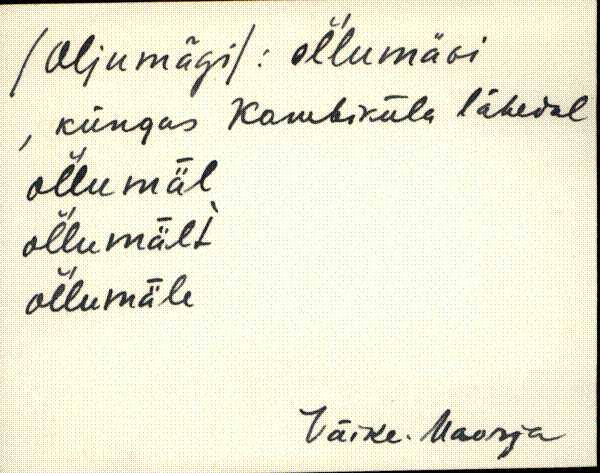 /Oljumägi/: öl̆lumäɢi
, küngas Kambiküla lähedal
öl̆lumǟl
öl̆lumǟl̀t
öl̆lumǟle
Väike-Maarja